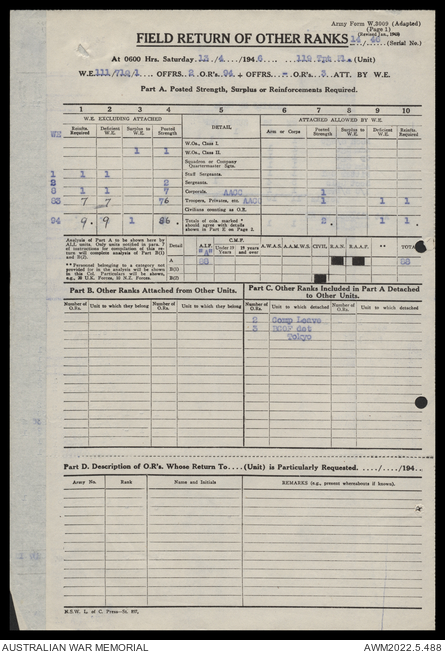 Army Form W.3009 (Adapted)
(Page 1)
(Revised Jan., 1943)
FIELD RETURN OF OTHER RANKS 14/46 (Serial No.)
At 0600 Hrs. Saturday 13/4/1946 119 Tpt Pl. (Unit)
W.E. 111/719/1 OFFRS. 2 O.R's. 94 + OFFRS. - O.R's. 3 ATT. BY W.E.
Part A. Posted Strength, Surplus or Reinforcements Required.
1 2 3 4 5 6 7 8 9 10
W.E. EXCLUDING ATTACHED DETAIL ATTACHED ALLOWED BY W.E.
WE Reinfts. Required Deficient W.E. Surplus to W.E. Posted Strength Arms or Corps Posted Strength Surplus to W.E. Deficient W.E. Reinfts. Required
W.Os., Class I.
1 1 W.Os., Class II.
Squadron or Company Quartermaster Sgts.
1 1 1 Staff Sergeants.
2 2 Sergeants.
8 1 1 7 Corporals. AACC 1
83 7 7 76 Troopers, Privates, etc. AACC 1 1 1
Civilians counting as O.R.
94 9 . 9 1 86 . Totals of cols. marked * should agree with details shewn in Part E on Page 2. 2 . 1 1
Analysis of Part A to be shewn here by ALL units. Only units entitled in para. 7 of instructions for compilation of this return will complete analysis of Part B(1) and B(2).
**Personnel belonging to a category not provided for in the analysis will be shewn in this Col. Particulars will be shewn, e.g., as U.K. Forces, or N.Z. Forces.
Detail A.I.F. "A" C.M.F. Under 19 Years 19 years and over A.W.A.S. A.A.M.W.S. CIVIL R.A.N. R.A.A.F. ** TOTAL
A 88 88
B(1)
B(2)
Part B. Other Ranks Attached from Other Units.
Number of O.Rs. Unit to which they belong Number of O.Rs. Unit to which they belong
Part C. Other Ranks Included in Part A Detached to Other Units.
Number of O.Rs. Unit to which detached Number of O.Rs. Unit to which detached
2 Comp Leave
3 BCOF det
Tokyo
Part D. Description of O.R's. Whose Return To....(Unit) is Particularly Requested...../...../194...
Army No. Rank Name and Initials REMARKS (e.g., present whereabouts if known).
N.S.W. L. of C. Press
AUSTRALIAN WAR MEMORIAL AWM2022.5.488